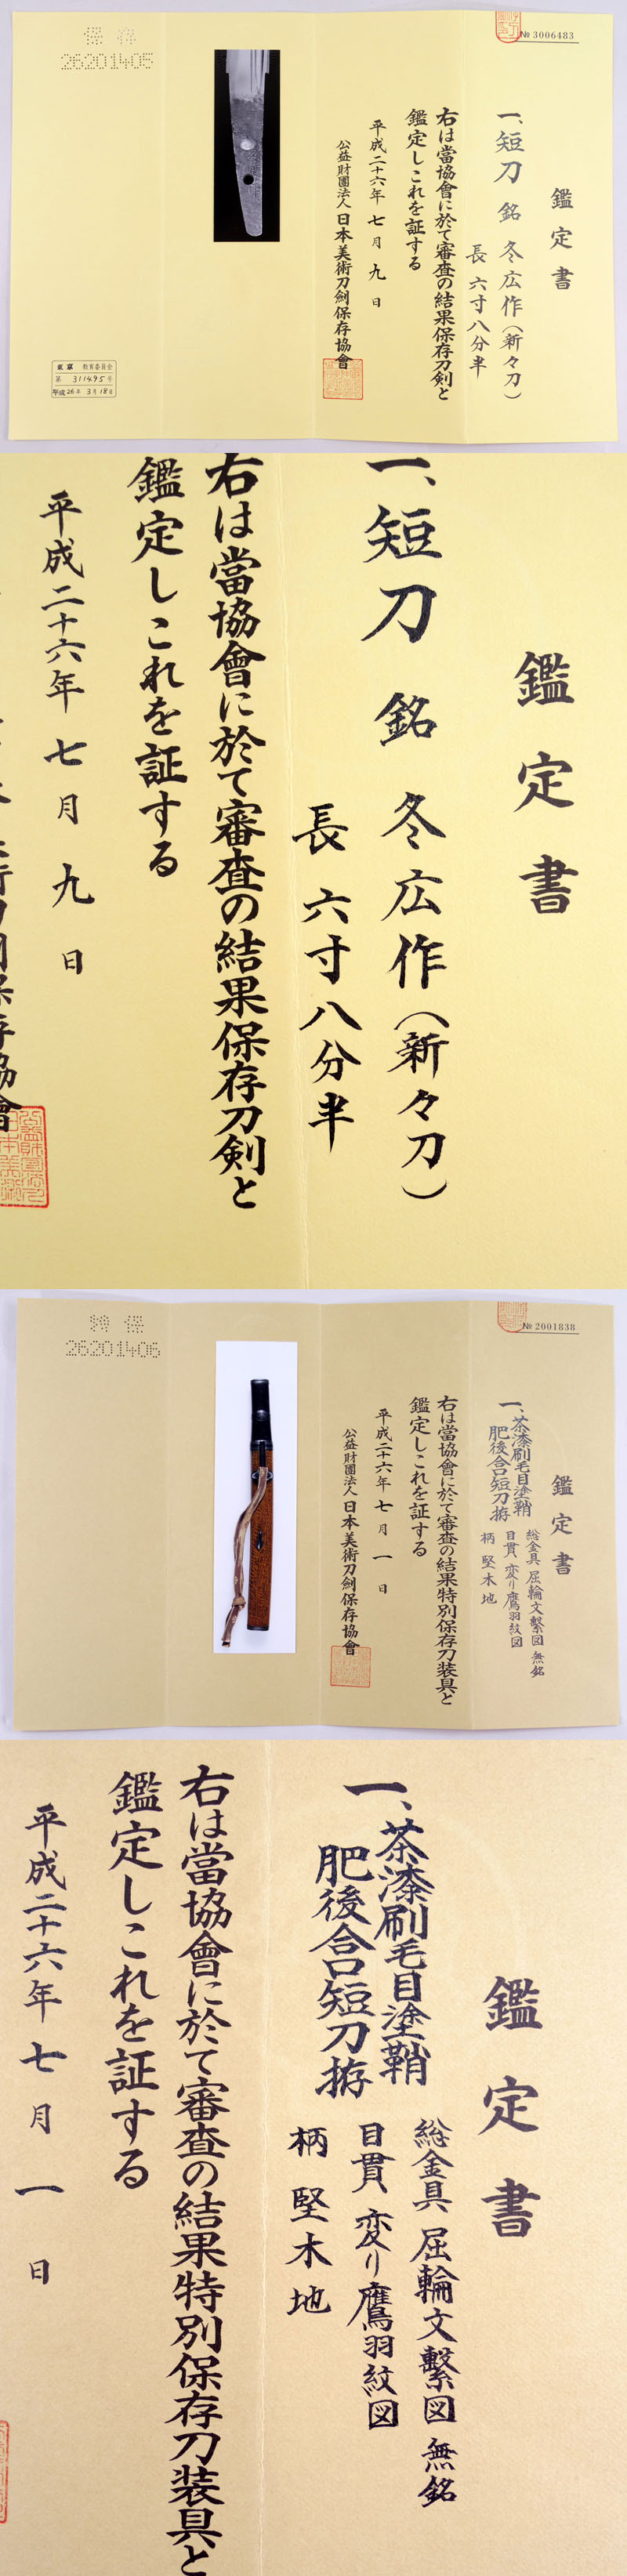 № 3006483
鑑定書
一、短刀 銘 冬広作(新々刀)
長 六寸八分半
右は當協會に於て審査の結果保存刀剣と
鑑定しこれを証する
平成二十六年 七月 九日
公益財團法人 日本美術刀劍保存協會
保存
26201405
東京 教育委員会
第 311495 号
平成 26年 3月 18日
一、短刀 銘 冬広作(新々刀)
長 六寸八分半
鑑定書
右は當協會に於て審査の結果保存刀剣と
鑑定しこれを証する
平成二十六年 七月 九日
№ 2001838
鑑定書
一、茶漆刷毛目塗鞘
肥後合口短刀拵
総金具 屈輪文繋図 無銘
目貫 変り鷹羽紋図
柄 堅木地
右は當協會に於て審査の結果特別保存刀装具と
鑑定しこれを証する
平成二十六年 七月 一日
公益財團法人 日本美術刀劍保存協會
特保
26201406
鑑定書
一、茶漆刷毛目塗鞘
肥後合口短刀拵
総金具 屈輪文繋図 無銘
目貫 変り鷹羽紋図
柄 堅木地
右は當協會に於て審査の結果特別保存刀装具と
鑑定しこれを証する
平成二十六年 七月 一日